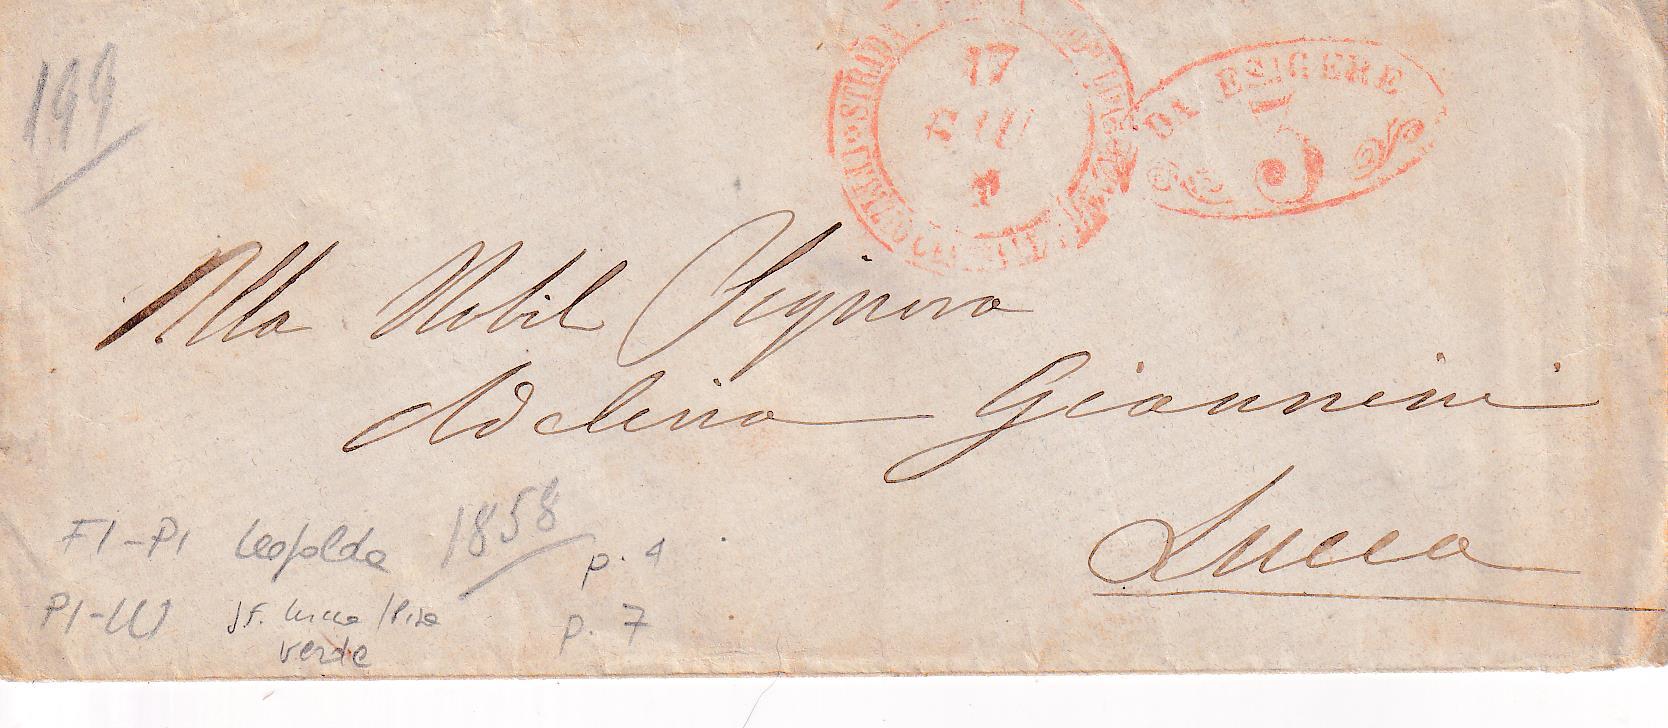 199
STRADA
17
GIU
DA ESIGERE
5
Alla Nobil Signora
Adelina Giannini
Lucca
FI-PI Leopolda 1858 p. 4
PI-LU Lucca/Pisa p. 7
verde